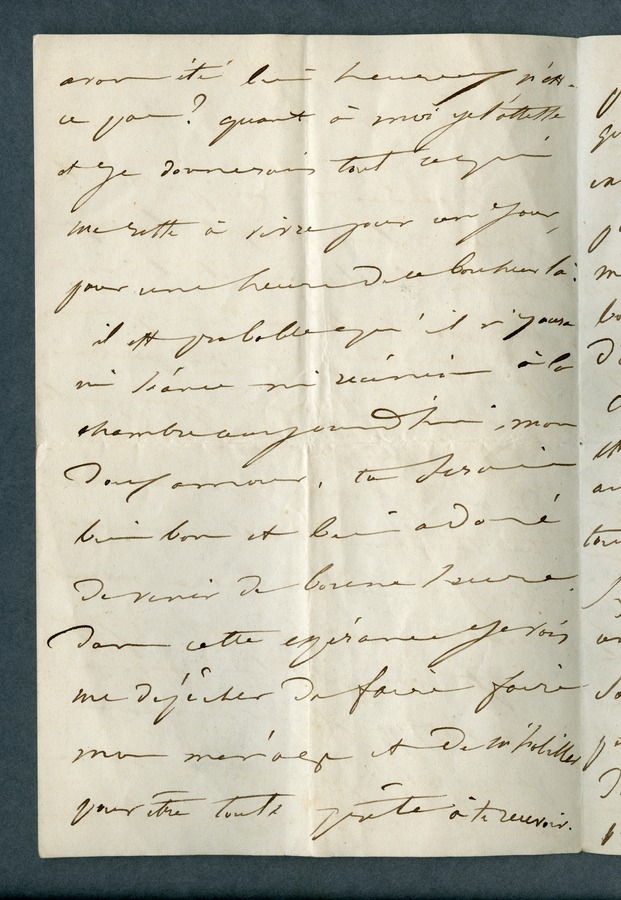 avons été bien heureux, n'est-
ce pas ? quant à moi je l'atteste
et je donnerais tout ce qui
me reste à vivre pour un jour,
pour une heure de ce bonheur là.
il est probable qu'il n'y aura
ni séance ni réunion à la
chambre aujourd'hui, mon
doux amour, tu serais
bien bon et bien adoré
de venir de bonne heure.
Dans cette espérance je vais
me dépêcher de faire faire
mon ménage et de m'habiller
pour être toute prête à te recevoir.